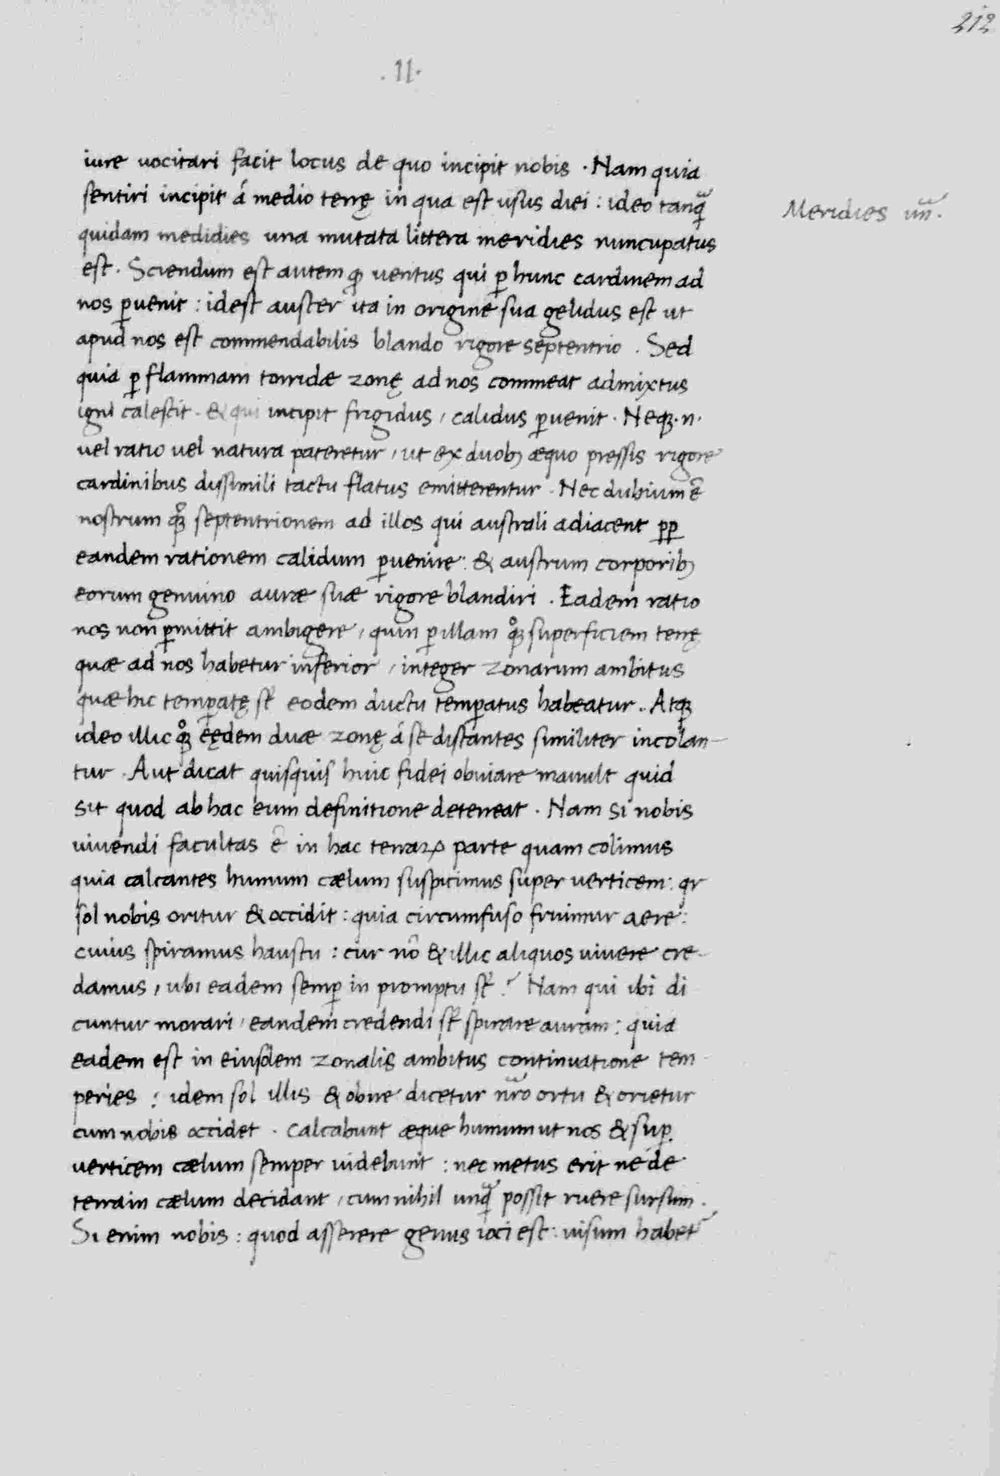 212
.II.
iure uocitari facit locus de quo incipit nobis . Nam quia
sentiri incipit á medio terrę in qua est usus diei : ideo tanq̃
Meridies uñ.
quidam medidies una mutata littera meridies nuncupatus
est . Sciendum est autem ꝙ uentus qui ꝑ hunc cardinem ad
nos ꝑuenit : idest auster ita in origine sua gelidus est ut
apud nos est commendabilis blando rigore septentrio . Sed
quia ꝑ flammam torridæ zonę ad nos commeat admixtus
igni calescit . & qui incipit frigidus , calidus ꝑuenit . Neqꝫ .n.
uel ratio uel natura pateretur , ut ex duobꝫ æquo pressis rigore
cardinibus dissimili tactu flatus emitterentur . Nec dubium ē
nostrum qꝫͦ septentrionem ad illos qui australi adiacent ꝓꝑ
eandem rationem calidum ꝑuenire : & austrum corporibꝫ
eorum genuino auræ suæ rigore blandiri . Eadem ratio
nos non ꝑmittit ambigere , quin ꝑ illam qꝫͦ superficiem terrę
quæ ad nos habetur inferior , integer zonarum ambitus
quæ hic temꝑatę st̃ eodem ductu temꝑatus habeatur . Atqꝫ
ideo illic qꝫͦ eędem duæ zonę á se distantes similiter incolan-
tur . Aut dicat quisquis huic fidei obuiare mauult quid
sit quod ab hac eum definitione deterreat . Nam si nobis
uiuendi facultas ē in hac terraꝝ parte quam colimus
quia calcantes humum cælum suspicimus super uerticem : qr
sol nobis oritur & occidit : quia circumfuso fruimur aere :
cuius spiramus haustu : cur nō & illic aliquos uiuere cre-
damus , ubi eadem semꝑ in promptu st̃ ? Nam qui ibi di
cuntur morari , eandem credendi st̃ spirare auram : quia
eadem est in eiusdem zonalis ambitus continuatione tem
peries : idem sol illis & obire dicetur nr̃o ortu & orietur
cum nobis occidet . Calcabunt æque humum ut nos & suꝑ
uerticem cælum semper uidebunt : nec metus erit ne de
terra in cælum decidant , cum nihil unq̃ possit ruere sursum .
Si enim nobis : quod asserere genus ioci est : uisum habet᷑